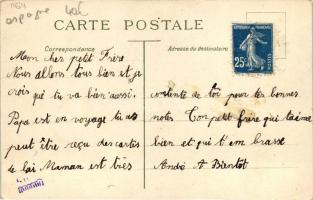 CARTE POSTALE
Correspondance
Adresse du destinataire
25c
POSTES
Mon cher petit Frère
Nous allons tous bien et je
crois que tu va bien aussi.
Papa est en voyage tu as
peut être reçu des cartes
de lui Maman est très
contente de toi pour tes bonnes
notes Ton petit frère qui t'aime
bien et qui t'em brasse
André A Bientot